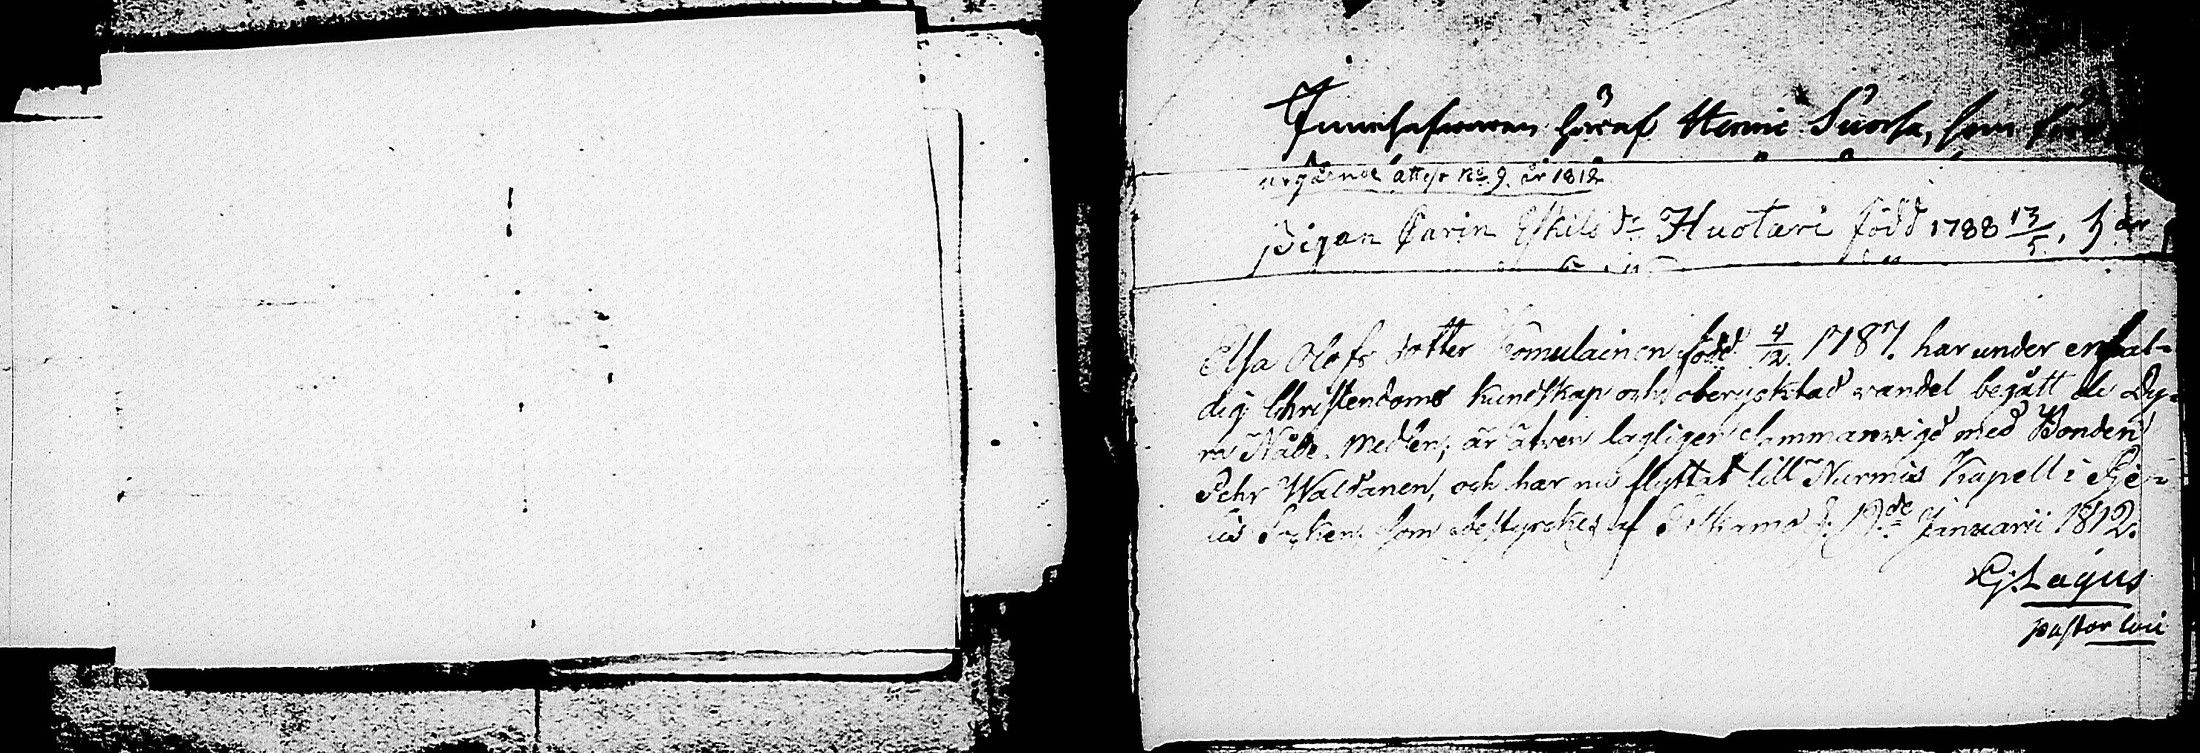 Innehafwaren häraf Henric Suorsa, som
utgående attest No 9. år 1812
Pigan Carin Eskils dr Huotari född 1788 13/5, är
Elsa Olofs dotter Komulainen född 4/12 1787. har under enfal-
dig Christendoms kundskap och oberycktad vandel begått de Dy-
ra Nåde-Medlen, är äfven lagligen Sammanvigd med Bonden
Pehr Waldanen, och har nu flyttat till Nurmis Kapell i Pie-
lis Socken, som bestyrckes af Sotkamo d. 19de Januarii 1812.
G: Lagus
pastor loci